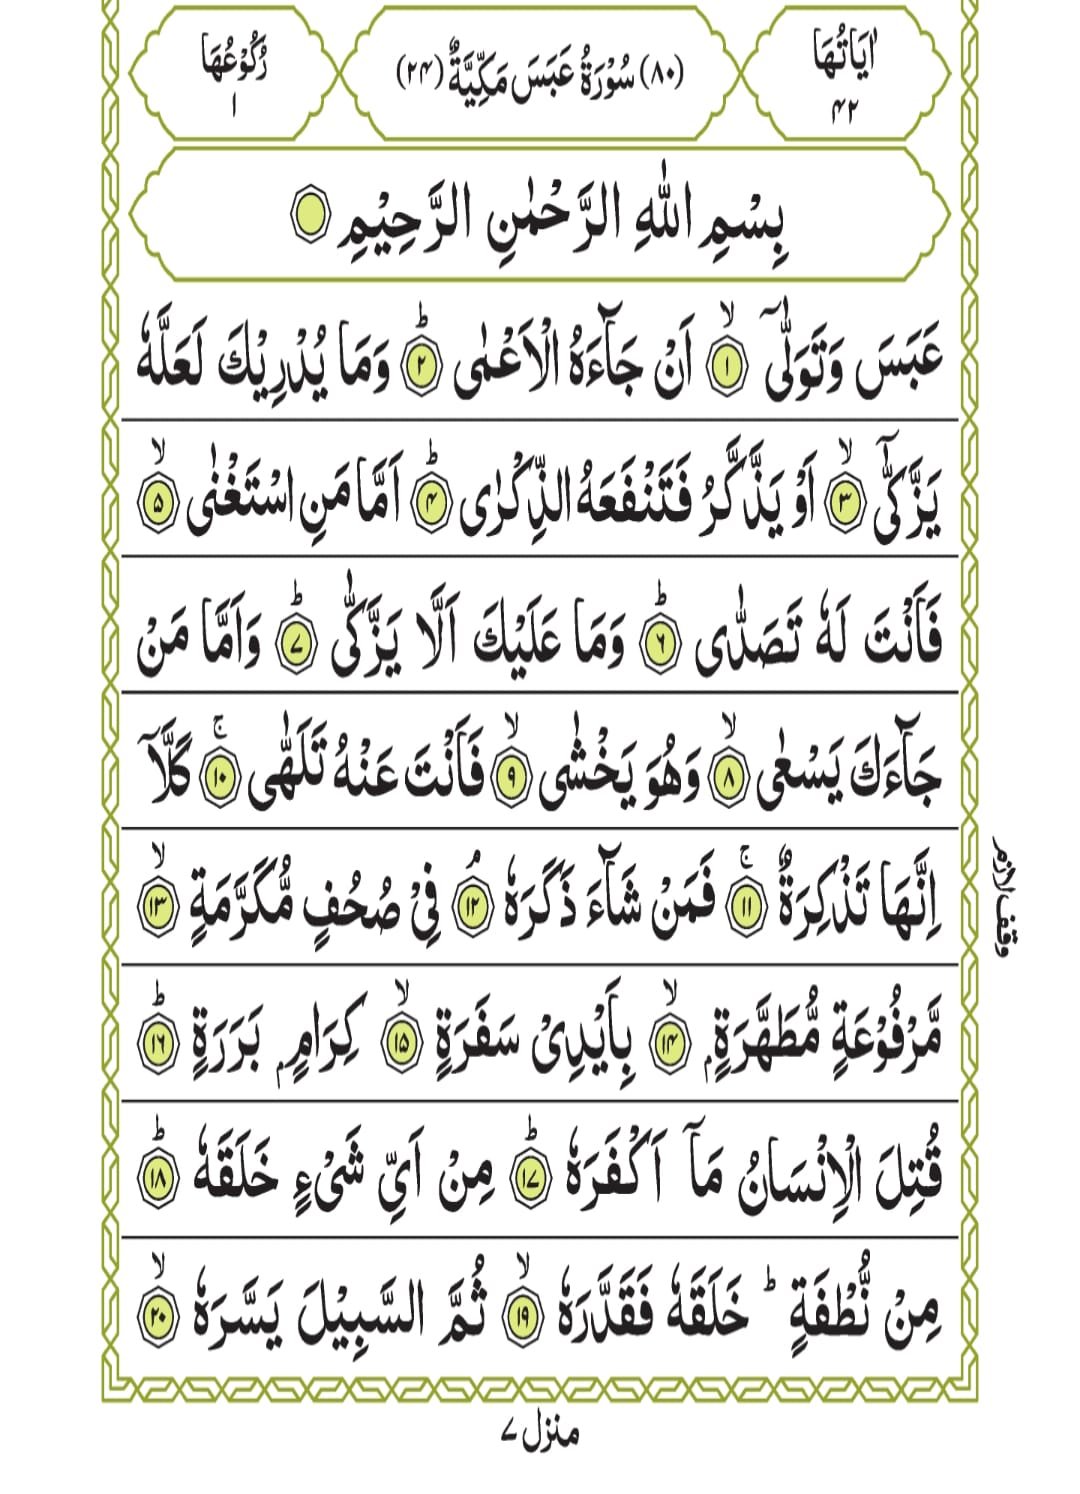 اٰيَاتُهَا ٤٢ (٨٠) سُوْرَةُ عَبَسَ مَكِّيَّةٌ (٢٤) رُكُوْعُهَا ١
بِسْمِ اللّٰهِ الرَّحْمٰنِ الرَّحِيْمِ
عَبَسَ وَتَوَلّٰىٓ ۙ﴿١﴾ اَنْ جَآءَهُ الْاَعْمٰى ؕ﴿٢﴾ وَمَا يُدْرِيْكَ لَعَلَّهٗ
يَزَّكّٰىٓ ۙ﴿٣﴾ اَوْ يَذَّكَّرُ فَتَنْفَعَهُ الذِّكْرٰى ؕ﴿٤﴾ اَمَّا مَنِ اسْتَغْنٰى ۙ﴿٥﴾
فَاَنْتَ لَهٗ تَصَدّٰى ؕ﴿٦﴾ وَمَا عَلَيْكَ اَلَّا يَزَّكّٰى ؕ﴿٧﴾ وَاَمَّا مَنْ
جَآءَكَ يَسْعٰى ۙ﴿٨﴾ وَهُوَ يَخْشٰى ۙ﴿٩﴾ فَاَنْتَ عَنْهُ تَلَهّٰى ۚ﴿١٠﴾ كَلَّاۤ
اِنَّهَا تَذْكِرَةٌ ۚ﴿١١﴾ فَمَنْ شَآءَ ذَكَرَهٗ ۘ﴿١٢﴾ فِىْ صُحُفٍ مُّكَرَّمَةٍ ۙ﴿١٣﴾
وقف لازم
مَّرْفُوْعَةٍ مُّطَهَّرَةٍۭ ۙ﴿١٤﴾ بِاَيْدِىْ سَفَرَةٍ ۙ﴿١٥﴾ كِرَامٍۭ بَرَرَةٍ ؕ﴿١٦﴾
قُتِلَ الْاِنْسَانُ مَاۤ اَكْفَرَهٗ ؕ﴿١٧﴾ مِنْ اَىِّ شَىْءٍ خَلَقَهٗ ؕ﴿١٨﴾
مِنْ نُّطْفَةٍ ؕ خَلَقَهٗ فَقَدَّرَهٗ ۙ﴿١٩﴾ ثُمَّ السَّبِيْلَ يَسَّرَهٗ ۙ﴿٢٠﴾
منزل ٧